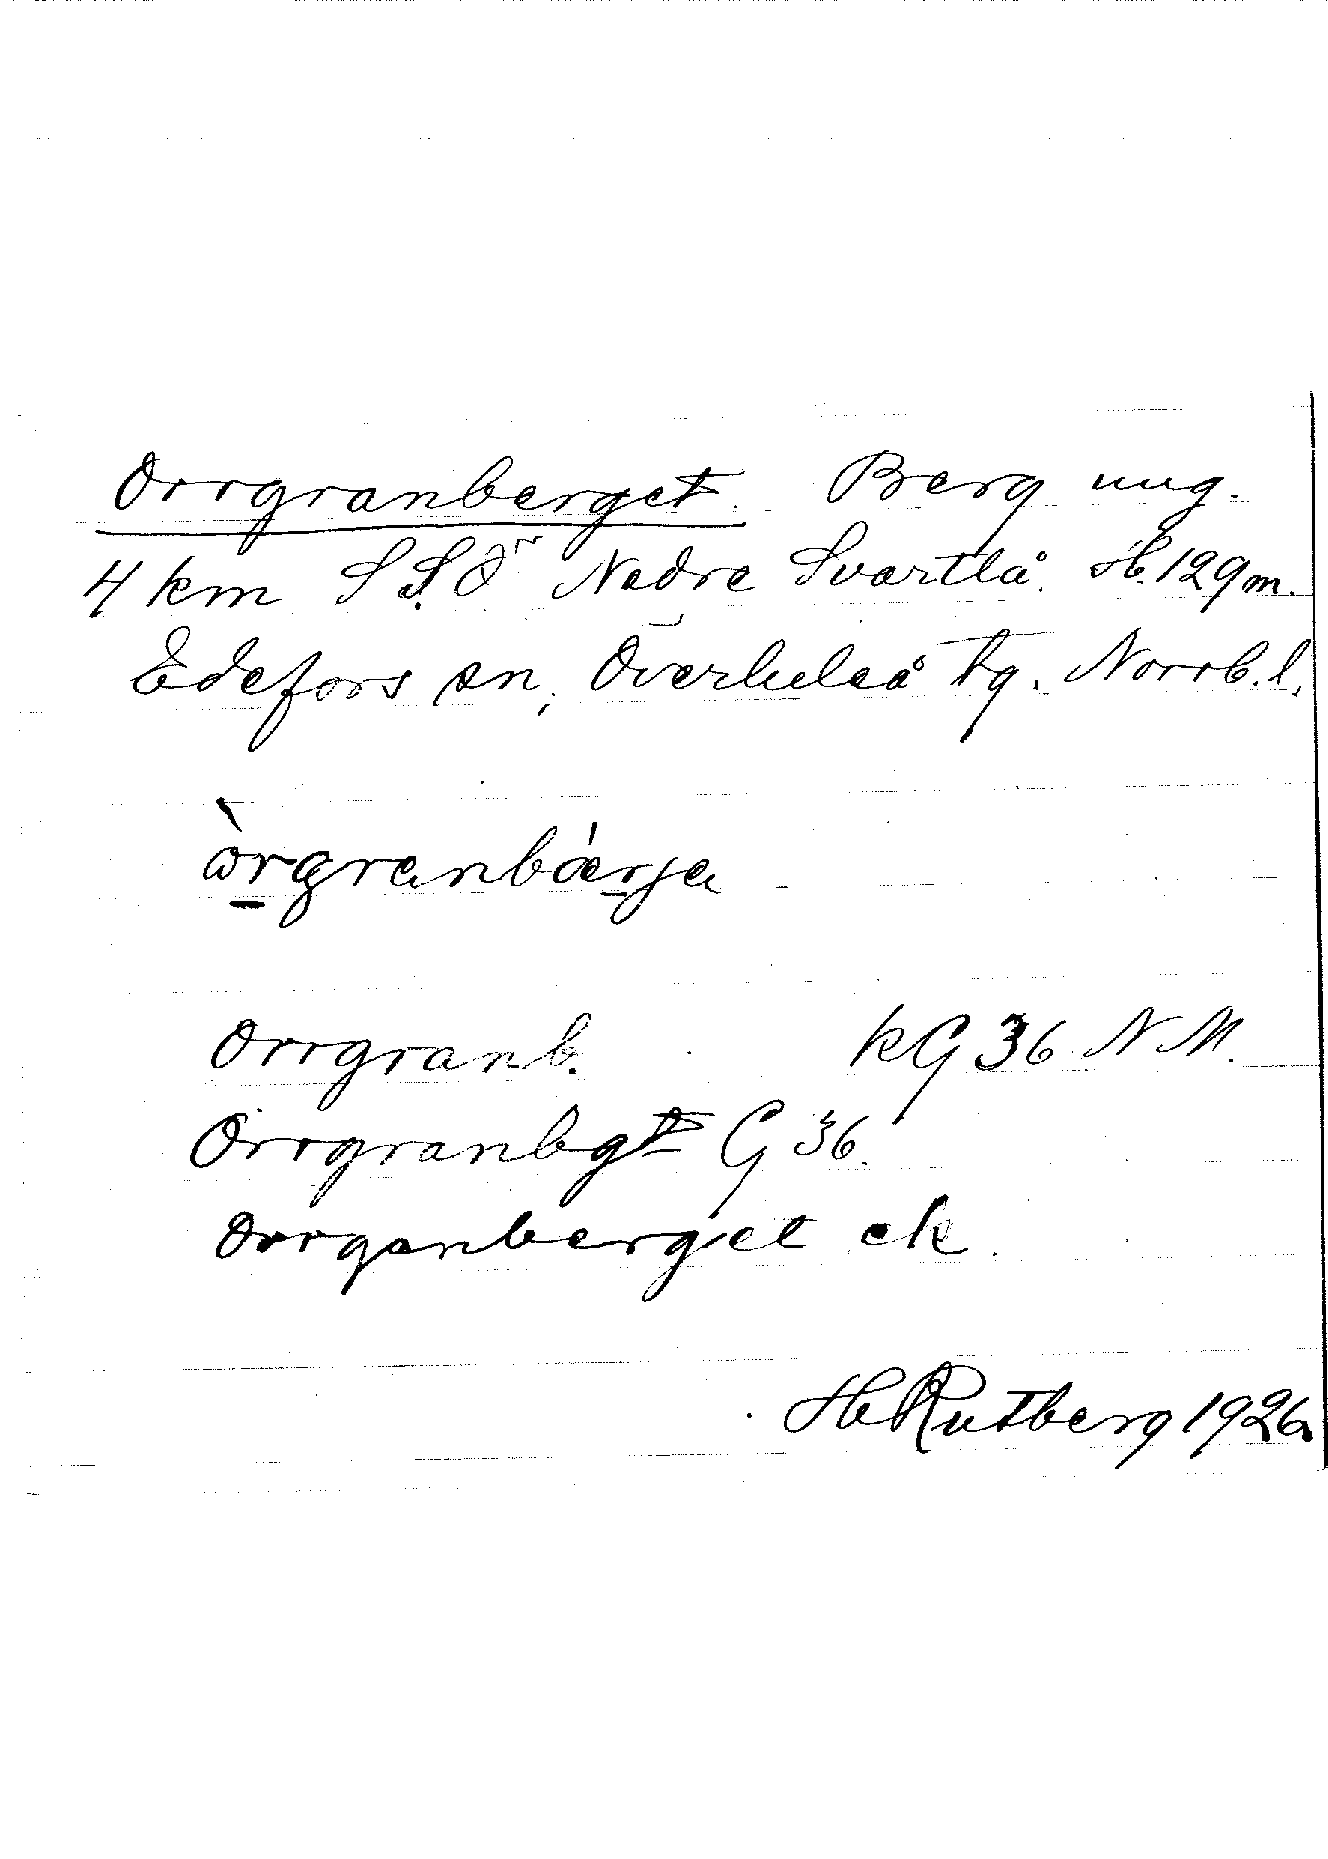 Orrgranberget. Berg ung.
4 km S.S.Ö Nedre Svartlå. H. 129 m.
Edefors sn, Överluleå tg. Norrb. l.
òrgranbǽrja
Orrgranb. kG 36 N M.
Orrgranbgt G 36.
Orrganberget ek.
H Rutberg 1926.